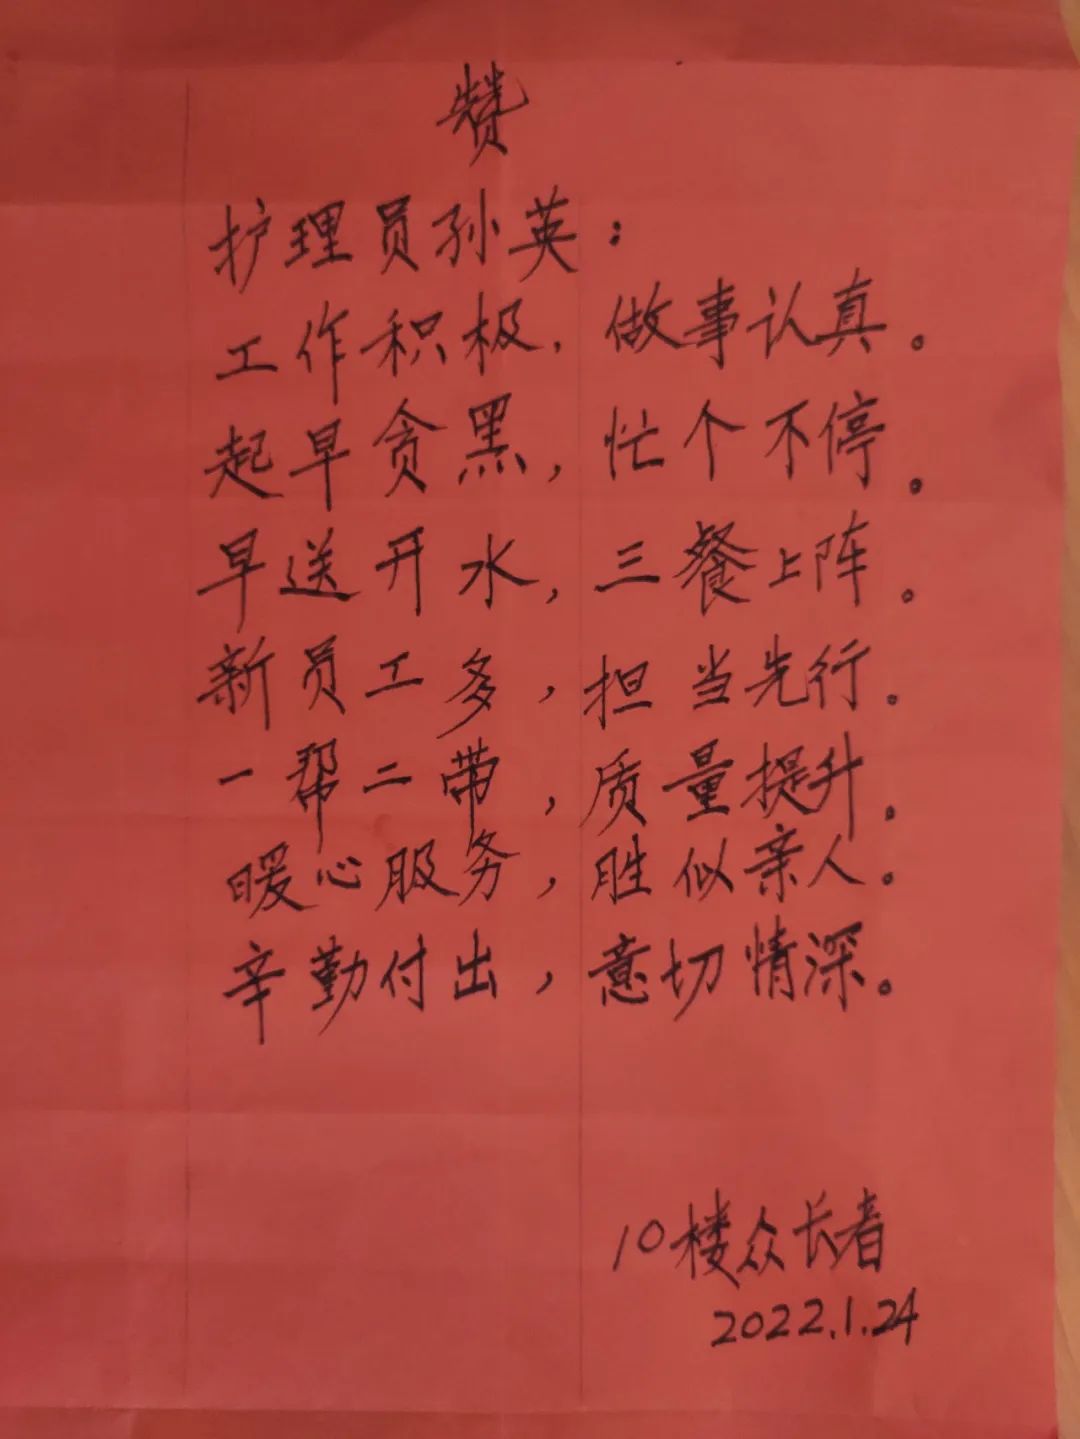 赞
护理员孙英：
工作积极，做事认真。
起早贪黑，忙个不停。
早送开水，三餐上阵。
新员工多，担当先行。
一帮二带，质量提升。
暖心服务，胜似亲人。
辛勤付出，意切情深。
10楼众长者
2022.1.24